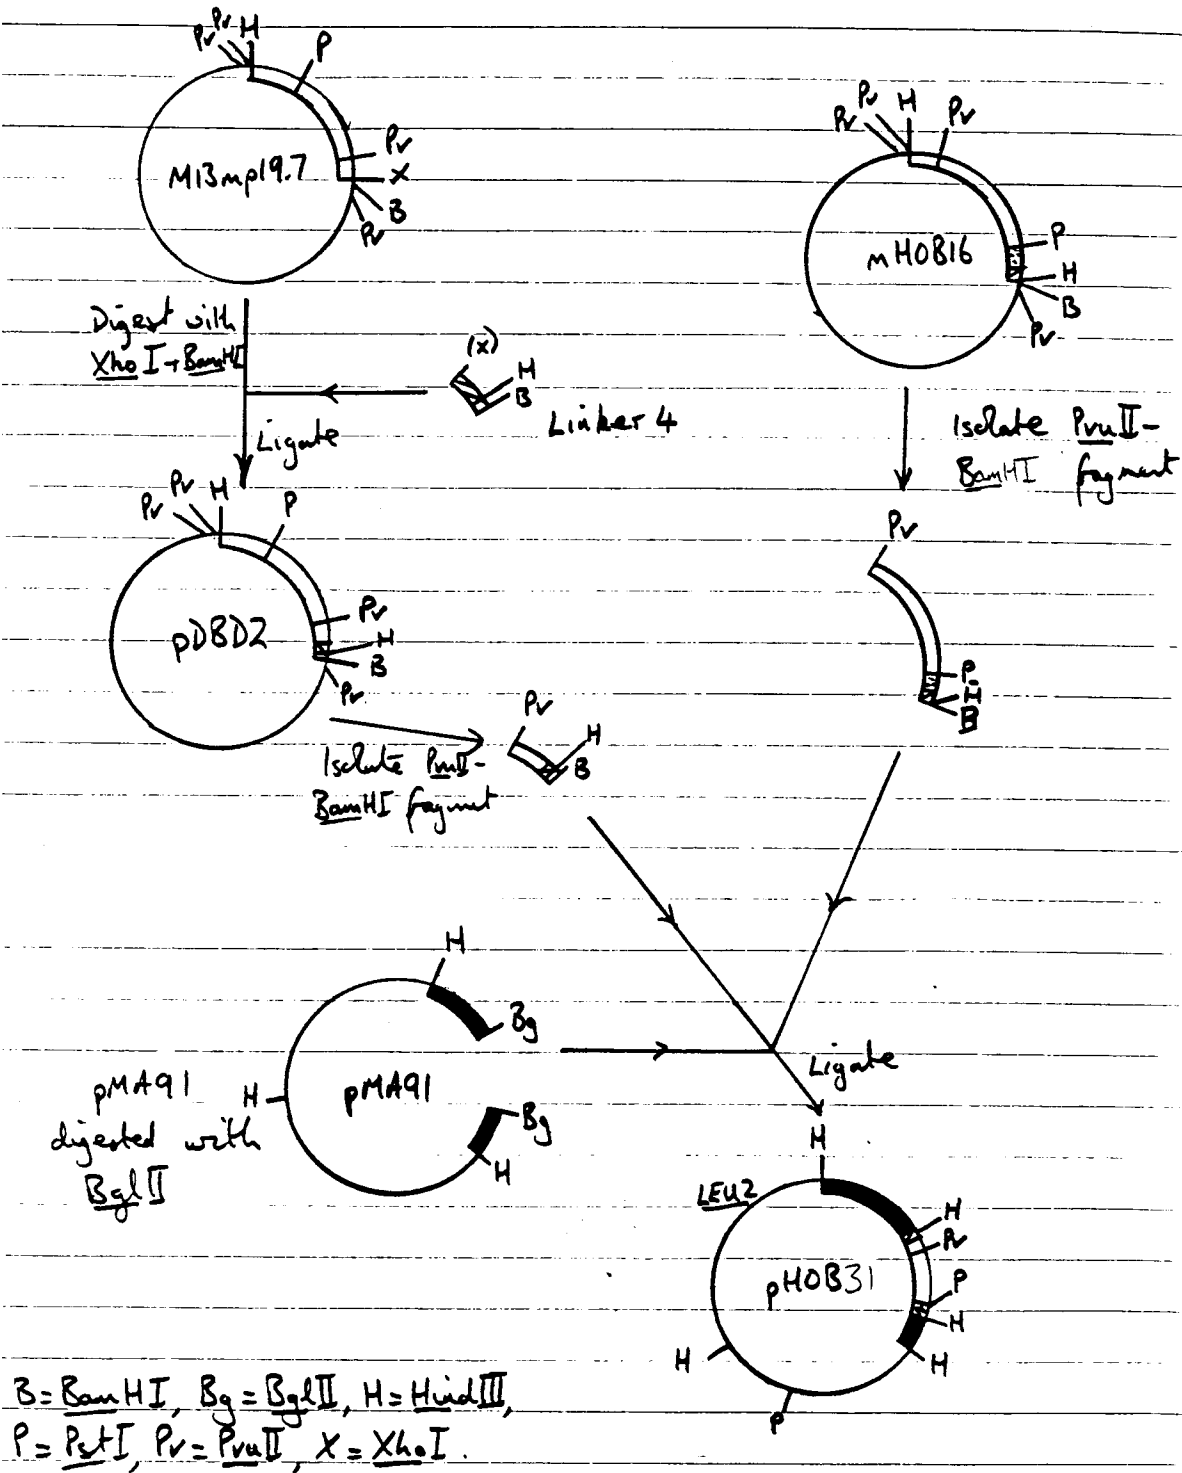 Pv Pv H
P
Pv
X
B
Pv
M13mp19.7
Pv Pv H Pv
mHOB16
P
H
B
Pv
Digest with
XhoI + BamHI
(X)
H
B
Linker 4
Ligate
Isolate PvuII-
BamHI fragment
Pv Pv H P
pDBD2
Pv
H
B
Pv
Pv
P
H
B
Isolate PvuII-
BamHI fragment
Pv
H
B
H
Bg
pMA91
digested with
BglII
H
pMA91
Bg
H
Ligate
H
LEU2
H
Pv
pHOB31
P
H
H
H
P
B = BamHI, Bg = BglII, H = HindIII,
P = PstI, Pv = PvuII, X = XhoI.